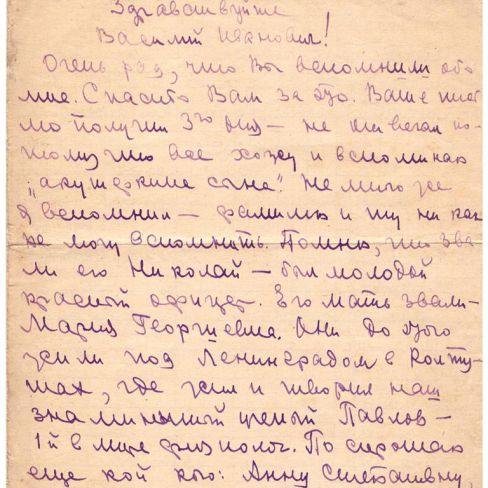 Здравствуйте
Василий Иванович!
Очень рад, что Вы вспомнили обо
мне. Спасибо Вам за это. Ваше пись
мо получил 3го дня — не отвечал по-
тому что все хожу и вспоминаю
"акушеркине сына". Не много же
я вспомнил — фамилию и ту ни как
не могу вспомнить. Помню, что зва
ли его Николай — был молодой
красный офицер. Его мать звали-
Мария Георгиевна. Они до этого
жили под Ленинградом в Колту-
шах, где жил и творил наш
знаминытый ученый Павлов —
1й в мире физиолог. По спрошаю
еще кой кого: Анну Степановну,